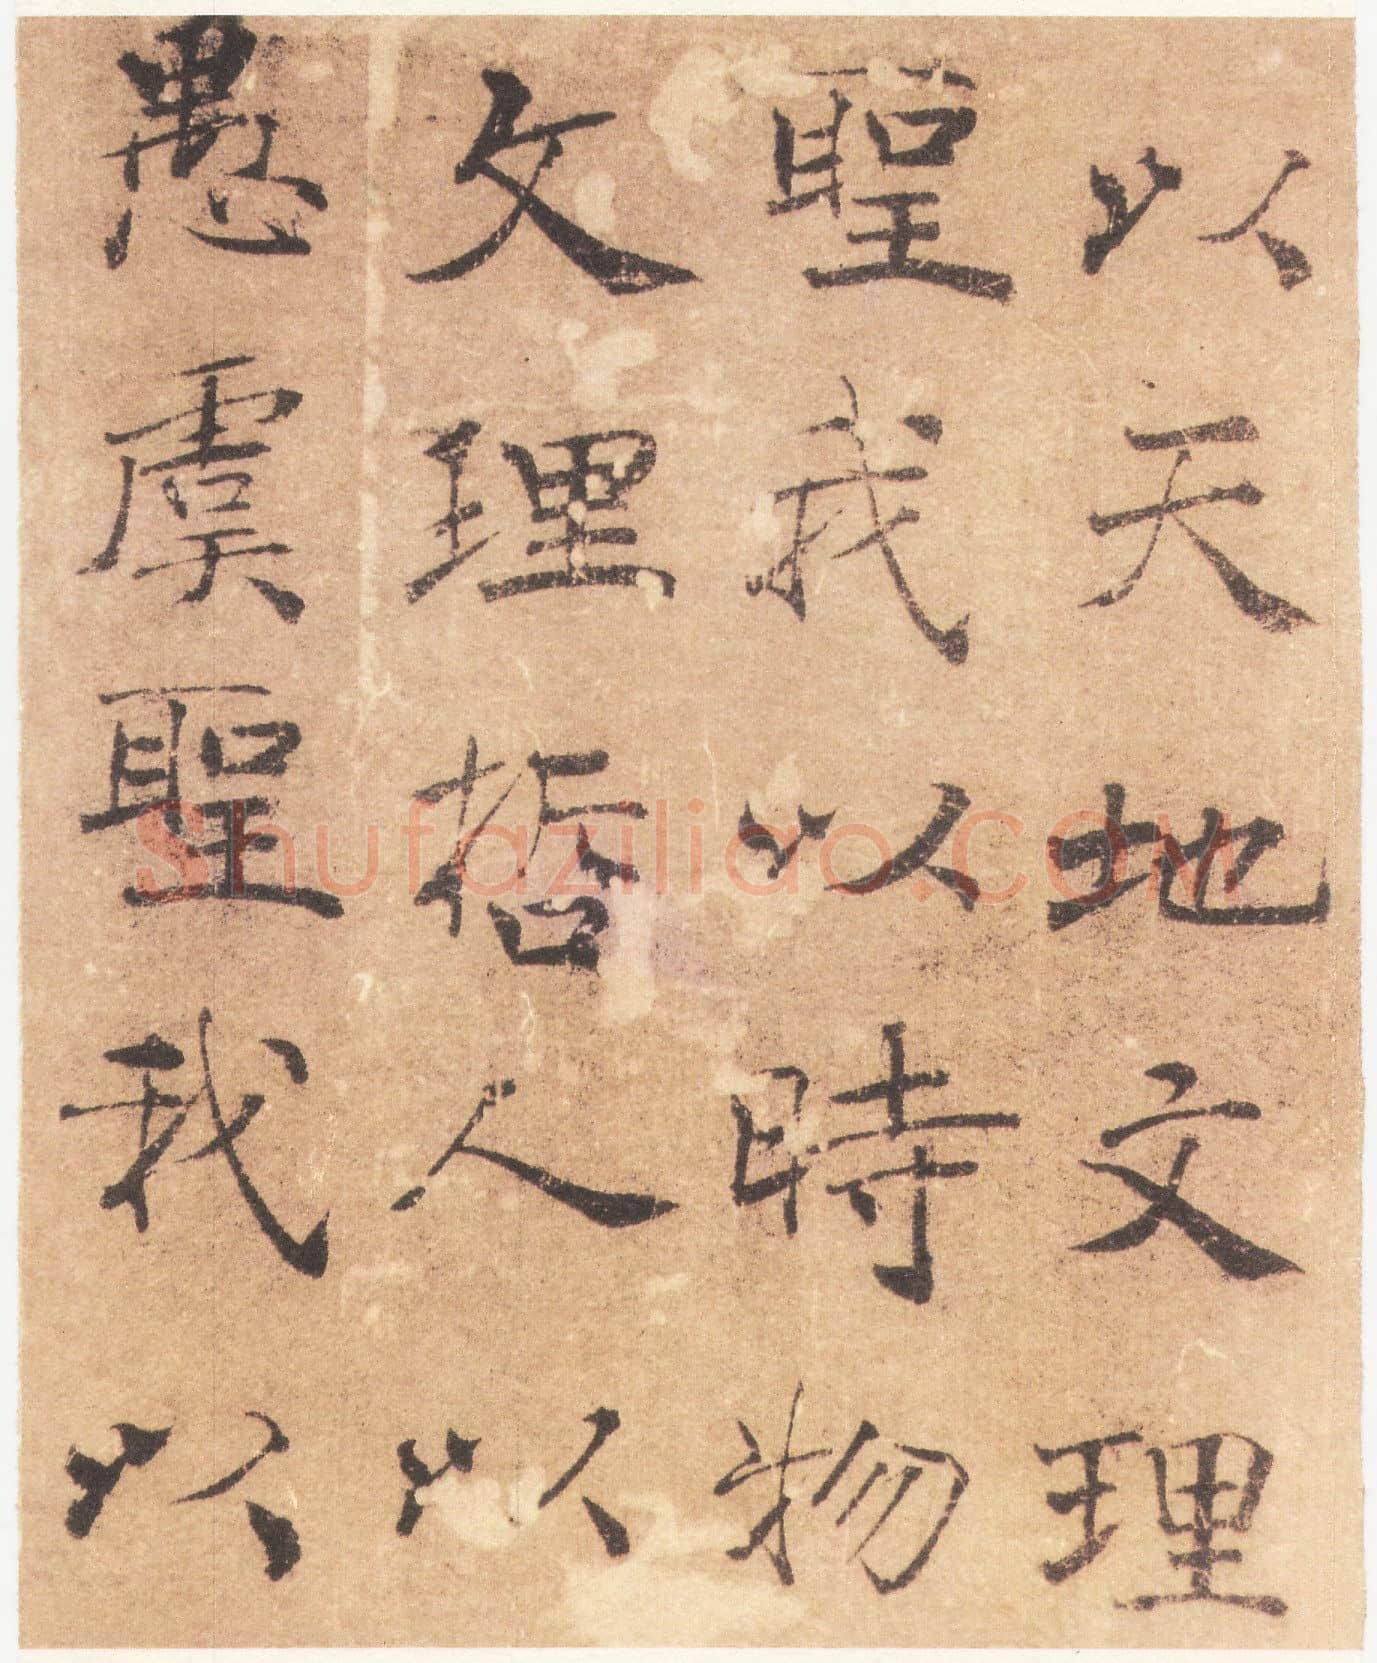 以天地文理
聖我以時物
文理哲人以
愚虞聖我以
shufaziliao.com